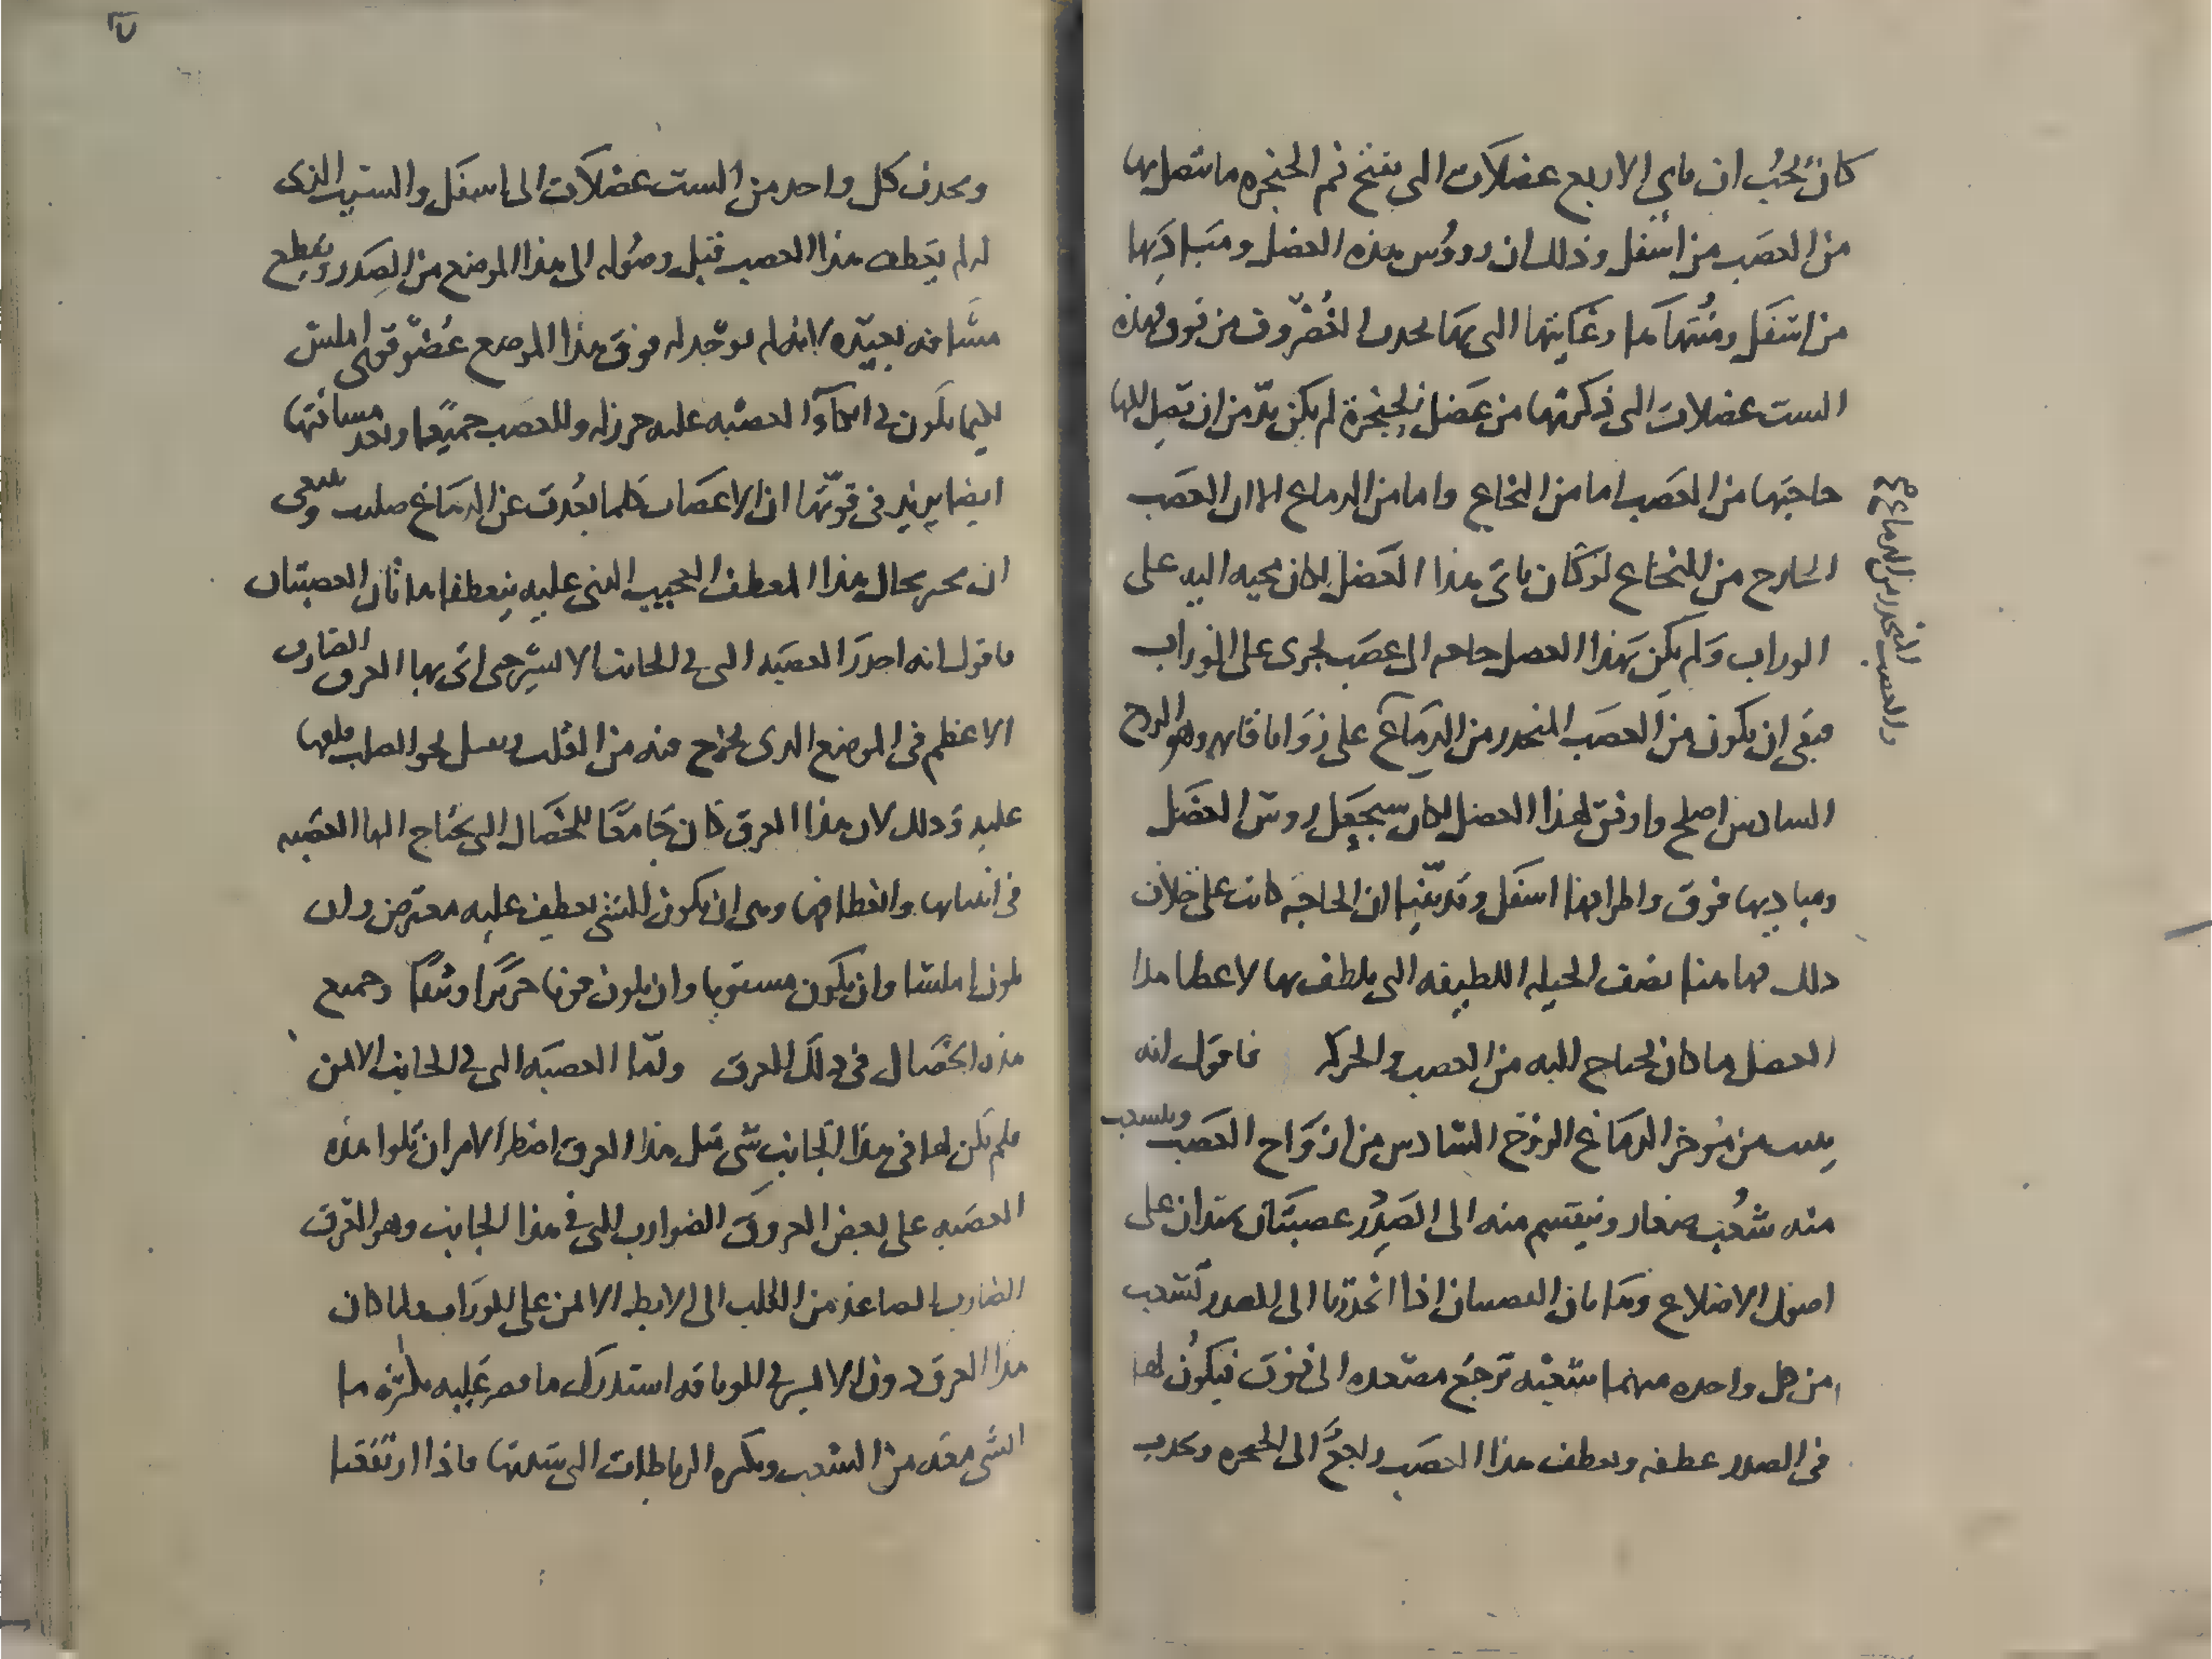 كان يجب ان ياتي الاربع عضلات التي تفتح فم الحنجره ما يتصل بها
من العصب من اسفل وذلك ان رووس هذه العضل ومباديها
من اسفل ومنتهاها وغايتها التي بها تحدث الغضروف من فوق وهذه
الست عضلات التي ذكرتها من عضل الحنجرة لم يكن بد من ان تصل اليها
حاجتها من العصب اما من النخاع واما من الدماغ الا ان العصب
الخارج من النخاع لو كان ياتي هذا العضل لكان مجيه اليه على
الوراب ولم يكن بهذا العضل حاجه الى عصب يجري على الوراب
فبقي ان يكون من العصب المنحدر من الدماغ على زوايا قايمه وهو الزوج
السادس اصلح واوفق لهذا العضل لكان سيجعل روس العضل
ومباديها فوق واطرافها اسفل وقد بينا ان الحاجه كانت على خلاف
ذلك فها هنا نصف الحيله اللطيفه التي يلطف بها لاعطا هذا
العضل ما كان يحتاج اليه من العصب والحركه فاقول انه
ينبت من موخر الدماغ الزوج السادس من ازواج العصب ويتشعب
منه شعب صغار وينقسم منه الى الصدر عصبتان تمتدان على
اصول الاضلاع وهاتان العصبتان اذا انحدرتا الى الصدر تشعب
من كل واحده منهما شعبه ترجع مصعده الى فوق فيكون لها
في الصدر عطفه ويعطف هذا العصب راجعا الى الحنجره ويجذب
والعصب المنحدر من الدماغ
ويجذب كل واحد من الست عضلات الى اسفل والسبب الذي
له لم يعطف هذا العصب قبل وصوله الى هذا الموضع من الصدر ويقطع
مسافه بعيده لانه لم يوجد له فوق هذا الموضع عضو قوي املس
كليما يكون في اتكاء العصبه عليه حرز له وللعصب جميعا وبعد مسافتها
ايضا يزيد في قوتها ان الاعصاب كلما بعدت عن الدماغ صلبت وينبغي
ان نخبر بحال هذا المعطف العجيب الذي عليه ينعطف هاتان العصبتان
فاقول انه احدر العصبه التي في الجانب الايسر حتى اتى بها العرق الضارب
الاعظم في الموضع الذي يخرج منه من القلب ويميل نحو الصلب فلفها
عليه وذلك لان هذا العرق كان جامعا للخصال التي يحتاج اليها العصبه
في انثنايها وانعطافها وهي ان يكون الشي يعطف عليه معترض وان
يكون املسا وان يكون مستويا وان يكون قويا حريزا وثيقا وجميع
هذه الخصال في ذلك العرق ولما العصبه التي في الجانب الايمن
فلم يكن لها في هذا الجانب شي مثل هذا العرق اضطر الامر ان تلوا هذه
العصبه على بعض العروق الضوارب التي في هذا الجانب وهو العرق
الضارب الصاعد من القلب الى الابط الايمن على الوراب ولما كان
هذا العرق دون الايسر في الوثاقه استدرك ما قصر عليه بكثرة ما
انشي معه من الشعب وبكثره الرباطات التي شدتها فاذا ارتفعتا